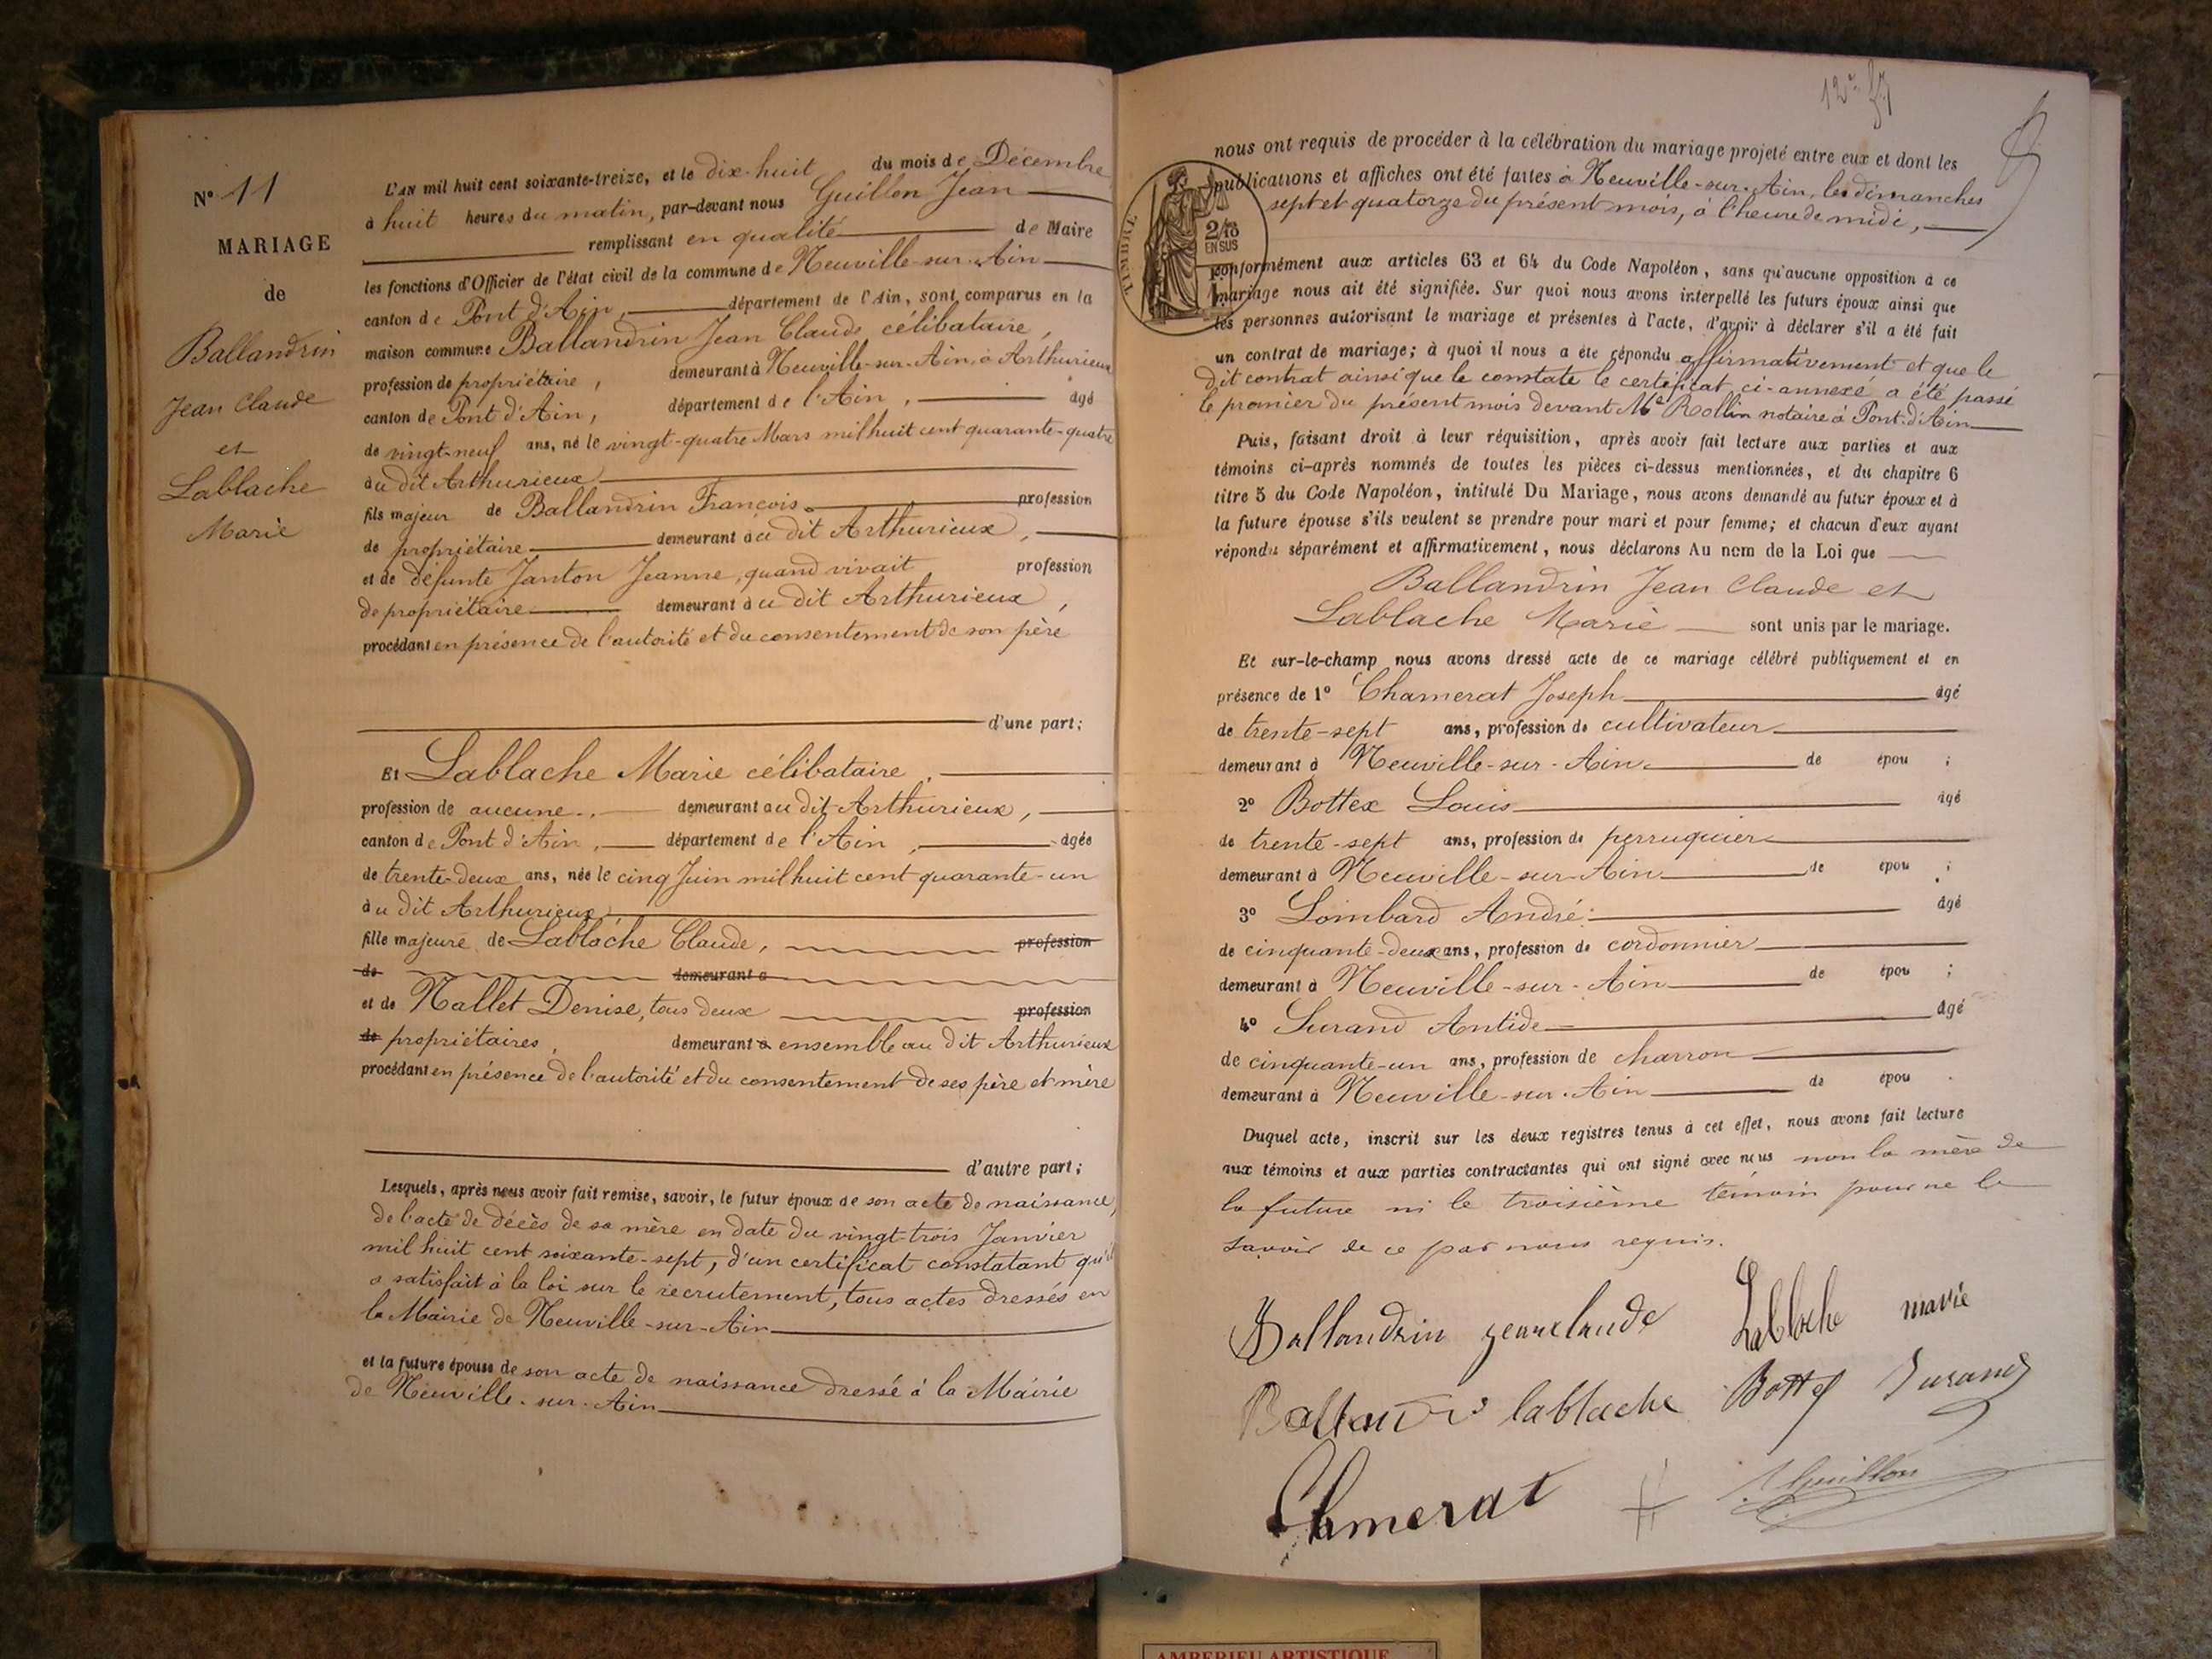 N° 11
MARIAGE
de
Ballandrin
Jean Claude
et
Lablache
Marie
L'AN mil huit cent soixante-treize, et le dix-huit du mois de Décembre
à huit heures du matin, par-devant nous Guillon Jean
remplissant en qualité de Maire
les fonctions d'Officier de l'état civil de la commune de Neuville-sur-Ain
canton de Pont d'Ain, département de l'Ain, sont comparus en la
maison commune Ballandrin Jean Claude célibataire,
profession de propriétaire, demeurant à Neuville-sur-Ain, à Arthurieux
canton de Pont d'Ain, département de l'Ain, âgé
de vingt-neuf ans, né le vingt-quatre Mars mil huit cent quarante-quatre
au dit Arthurieux
fils majeur de Ballandrin François profession
de propriétaire demeurant au dit Arthurieux,
et de défunte Janton Jeanne, quand vivait profession
de propriétaire demeurant au dit Arthurieux,
procédant en présence de l'autorité et du consentement de son père
d'une part;
Et Lablache Marie célibataire,
profession de aucune, demeurant au dit Arthurieux,
canton de Pont d'Ain, département de l'Ain, âgée
de trente-deux ans, née le cinq Juin mil huit cent quarante-un
au dit Arthurieux
fille majeure de Lablache Claude, profession
de demeurant à
et de Nallet Denise, tous deux profession
de propriétaires, demeurant à ensemble au dit Arthurieux
procédant en présence de l'autorité et du consentement de ses père et mère
d'autre part;
Lesquels, après nous avoir fait remise, savoir, le futur époux de son acte de naissance,
de l'acte de décès de sa mère en date du vingt-trois Janvier
mil huit cent soixante-sept, d'un certificat constatant qu'il
a satisfait à la loi sur le recrutement, tous actes dressés en
la Mairie de Neuville-sur-Ain
et la future épouse de son acte de naissance dressé à la Mairie
de Neuville-sur-Ain
TIMBRE
2/10
EN SUS
nous ont requis de procéder à la célébration du mariage projeté entre eux et dont les
publications et affiches ont été faites à Neuville-sur-Ain, les dimanches
sept et quatorze du présent mois, à l'heure de midi,
conformément aux articles 63 et 64 du Code Napoléon, sans qu'aucune opposition à ce
mariage nous ait été signifiée. Sur quoi nous avons interpellé les futurs époux ainsi que
les personnes autorisant le mariage et présentes à l'acte, d'avoir à déclarer s'il a été fait
un contrat de mariage; à quoi il nous a été répondu affirmativement et que le
dit contrat ainsi que le constate le certificat ci-annexé a été passé
le premier du présent mois devant Me Rollin notaire à Pont-d'Ain
Puis, faisant droit à leur réquisition, après avoir fait lecture aux parties et aux
témoins ci-après nommés de toutes les pièces ci-dessus mentionnées, et du chapitre 6
titre 5 du Code Napoléon, intitulé Du Mariage, nous avons demandé au futur époux et à
la future épouse s'ils veulent se prendre pour mari et pour femme; et chacun d'eux ayant
répondu séparément et affirmativement, nous déclarons Au nom de la Loi que
Ballandrin Jean Claude et
Lablache Marie sont unis par le mariage.
Et sur-le-champ nous avons dressé acte de ce mariage célébré publiquement et en
présence de 1° Chamerat Joseph âgé
de trente-sept ans, profession de cultivateur
demeurant à Neuville-sur-Ain de épou ;
2° Bottex Louis âgé
de trente-sept ans, profession de perruquier
demeurant à Neuville-sur-Ain de épou ;
3° Lombard André âgé
de cinquante-deux ans, profession de cordonnier
demeurant à Neuville-sur-Ain de épou ;
4° Durand Antide âgé
de cinquante-un ans, profession de charron
demeurant à Neuville-sur-Ain de épou .
Duquel acte, inscrit sur les deux registres tenus à cet effet, nous avons fait lecture
aux témoins et aux parties contractantes qui ont signé avec nous non la mère de
la future ni le troisième témoin pour ne le
savoir de ce par nous requis.
Ballandrin jean claude Lablache marie
lablache Bottex Durand
Chmerat Guillon
AMBERIEU ARTISTIQUE